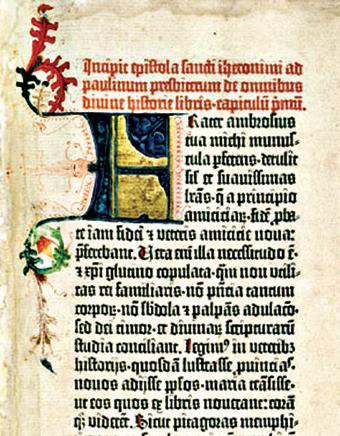 Incipit epistola sancti iheronimi ad
paulinum presbiterum de omnibus
divine historie libris · capitulũ pᷓmũ.
Frater ambrosius
tua michi munus-
cula ꝑferens · detulit
sił et suavissimas
lr̃as · q̃ a principio
amiciciaȝ · fidẽ ꝓba-
te iam fidei ⁊ veteris amicicie nova:
p̃ferebant. Vera em̃ illa necessitudo ẽ ·
⁊ xp̃i glutino copulata · qm̃ non utili-
tas rei familiaris · nõ p̃ncia tantum
corpoꝝ · nõ sb̃dola ⁊ palpãs adulaco ·
sed dei timor · et divinaꝝ scripturarũ
studia conciliant. Legimꝰ in veterib
historijs · quosdã lustrasse ꝓuincias ·
novos adijsse ppl̃os · maria trãsisse ·
ut eos quos ex libris noverant: corã
q̃ viderẽt. Sicut pitagoras memphi-